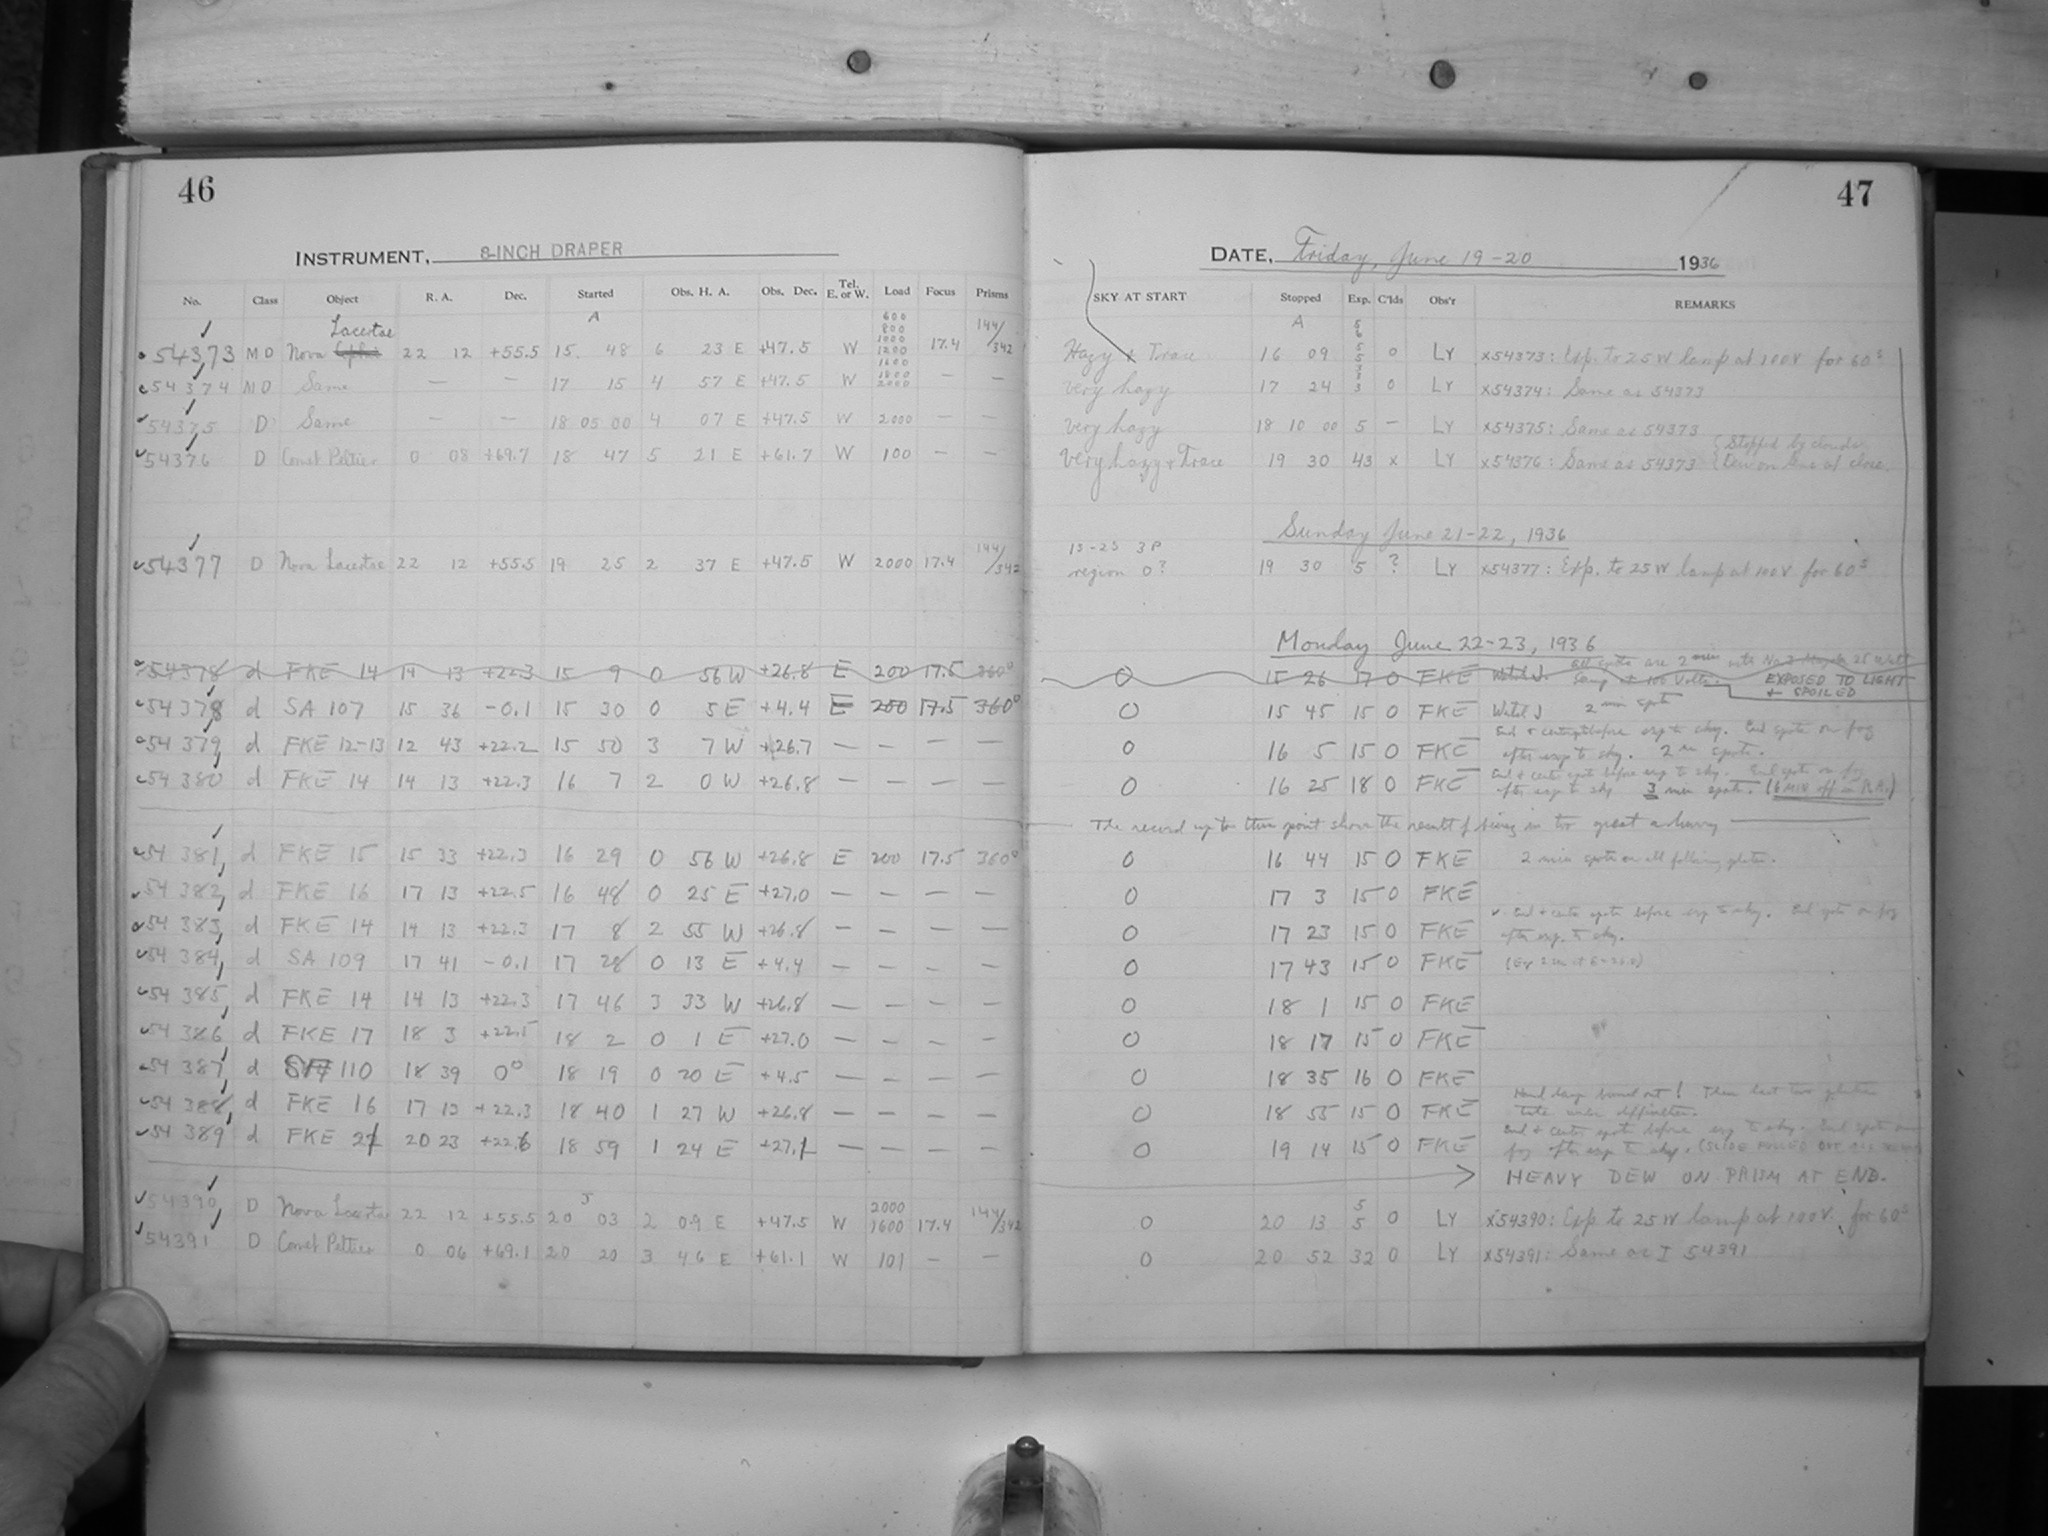 46
47
INSTRUMENT, 8-INCH DRAPER
DATE, Friday, June 19-20 1936
No. Class Object R. A. Dec. Started Obs. H. A. Obs. Dec. Tel. E. or W. Load Focus Prisms SKY AT START Stopped Exp. C'lds Obs'r REMARKS
A 600 800 1000 1200 1600 A 5 6 5 5
54373 MD Nova Lacertae 22 12 +55.5 15 48 6 23 E +47.5 W 17.4 144/342 Hazy + Trace 16 09 0 LY x54373: Exp. to 25W lamp at 100V for 60s
54374 MD Same — — 17 15 4 57 E +47.5 W 1800 2000 — — very hazy 17 24 3 3 3 0 LY x54374: Same as 54373
54375 D Same — — 18 05 00 4 07 E +47.5 W 2000 — — very hazy 18 10 00 5 — LY x54375: Same as 54373
54376 D Comet Peltier 0 08 +69.7 18 47 5 21 E +61.7 W 100 — — very hazy + Trace 19 30 43 x LY x54376: Same as 54373 { Stopped by clouds. Dew on lens at close.
Sunday June 21-22, 1936
54377 D Nova Lacertae 22 12 +55.5 19 25 2 37 E +47.5 W 2000 17.4 144/342 15-25 3P region 0? 19 30 5 ? LY x54377: Exp. to 25W lamp at 100V for 60s
Monday June 22-23, 1936
54378 d FKE 14 14 13 +22.3 15 9 0 56 W +26.8 E 200 17.5 360° 0 15 26 17 0 FKE All spots are 2 min with 25 Watt lamp at 100 Volts. EXPOSED TO LIGHT + SPOILED
54378 d SA 107 15 36 -0.1 15 30 0 5 E +4.4 E 200 17.5 360° 0 15 45 15 0 FKE 2 min spots
54379 d FKE 12-13 12 43 +22.2 15 50 3 7 W +26.7 — — — — 0 16 5 15 0 FKE End + center spots before exp to sky. End spots on fog after exp to sky. 2 m spots.
54380 d FKE 14 14 13 +22.3 16 7 2 0 W +26.8 — — — — 0 16 25 18 0 FKE End + center spots before exp to sky. End spots on fog after exp to sky 3 min spots. (6 MIN off in R.A.)
The record up to this point shows the result of being in too great a hurry
54381 d FKE 15 15 33 +22.3 16 29 0 56 W +26.8 E 200 17.5 360° 0 16 44 15 0 FKE 2 min spots on all following plates.
54382 d FKE 16 17 13 +22.5 16 48 0 25 E +27.0 — — — — 0 17 3 15 0 FKE
54383 d FKE 14 14 13 +22.3 17 8 2 55 W +26.8 — — — — 0 17 23 15 0 FKE End + center spots before exp to sky. End spots on fog after exp. to sky.
54384 d SA 109 17 41 -0.1 17 28 0 13 E +4.4 — — — — 0 17 43 15 0 FKE
54385 d FKE 14 14 13 +22.3 17 46 3 33 W +26.8 — — — — 0 18 1 15 0 FKE
54386 d FKE 17 18 3 +22.5 18 2 0 1 E +27.0 — — — — 0 18 17 15 0 FKE
54387 d SA 110 18 39 0° 18 19 0 20 E +4.5 — — — — 0 18 35 16 0 FKE
54388 d FKE 16 17 13 +22.3 18 40 1 27 W +26.8 — — — — 0 18 55 15 0 FKE Hand lamp burned out! These last two plates taken under difficulties.
54389 d FKE 21 20 23 +22.6 18 59 1 24 E +27.1 — — — — 0 19 14 15 0 FKE End + center spots before exp to sky. End spots on fog after exp to sky. (SLIDE PULLED OUT
HEAVY DEW ON PRISM AT END.
54390 D Nova Lacertae 22 12 +55.5 20 03 2 09 E +47.5 W 2000 1600 17.4 144/342 0 20 13 5 5 0 LY x54390: Exp. to 25W lamp at 100V. for 60s
54391 D Comet Peltier 0 06 +69.1 20 20 3 46 E +61.1 W 101 — — 0 20 52 32 0 LY x54391: Same as I 54391